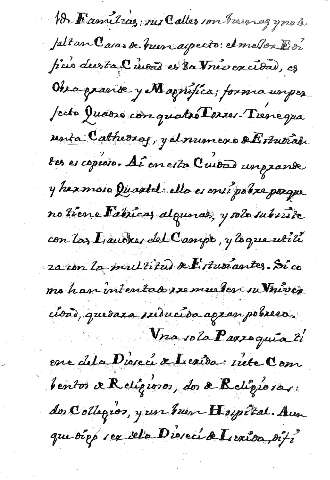 Familias: sus Calles son buenas y no le
faltan Casas de buen aspecto: el mellor Edi
ficio de esta Ciudad es la Vnivercidad, es
Obra grande y Magnifica; forma un per
fecto Quadro con quatro Torres. Tiene qua
renta Cathedras, y el numero de Estudian
tes es copioso. Ai en esta Ciudad un grande
y hermoso Quartel: ella es en si pobre porque
no tiene Fabricas algunas, y solo subsiste
con las Laudres del Campo, y lo que utili
za con la multitud de Estudiantes. Si co
mo han intentado remueben su Vniver
cidad, quedara reducida a gran pobreza.
Vna sola Parroquia ti
ene de la Dioseci de Lerida: siete Com
bentos de Religiosos, dos de Religiosas:
dos Collegios, y un buen Hospital. Aun
que digo ser de la Dioseci de Lerida, difi